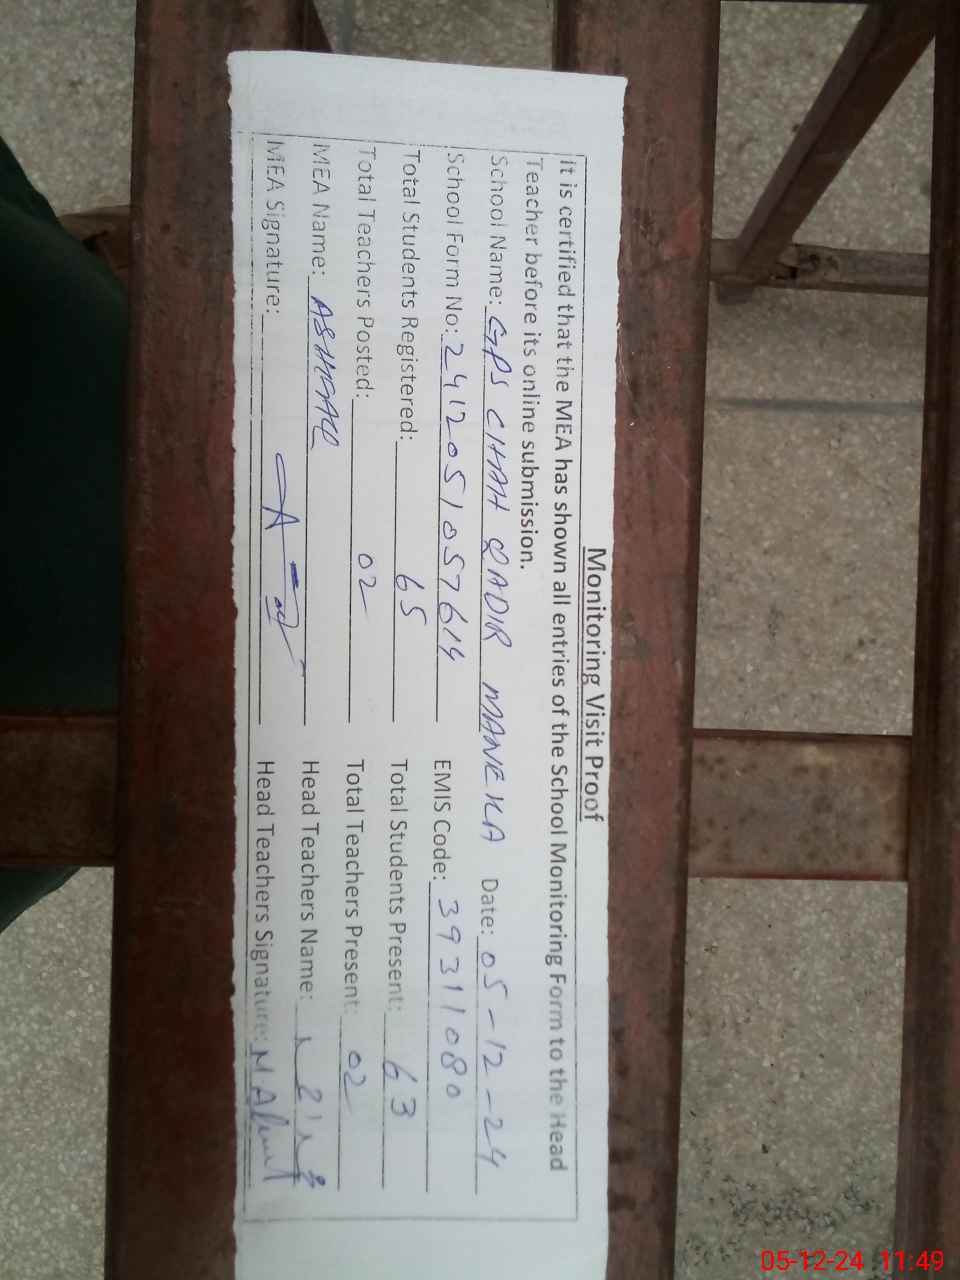 Monitoring Visit Proof
It is certified that the MEA has shown all entries of the School Monitoring Form to the Head
Teacher before its online submission.
School Name: GPS CHAH QADIR MANEKA Date: 05-12-24
School Form No: 2412051057614 EMIS Code: 39311080
Total Students Registered: 65 Total Students Present: 63
Total Teachers Posted: 02 Total Teachers Present: 02
MEA Name: ASHFAQ Head Teachers Name:
MEA Signature: Head Teachers Signature:
05-12-24 11:49